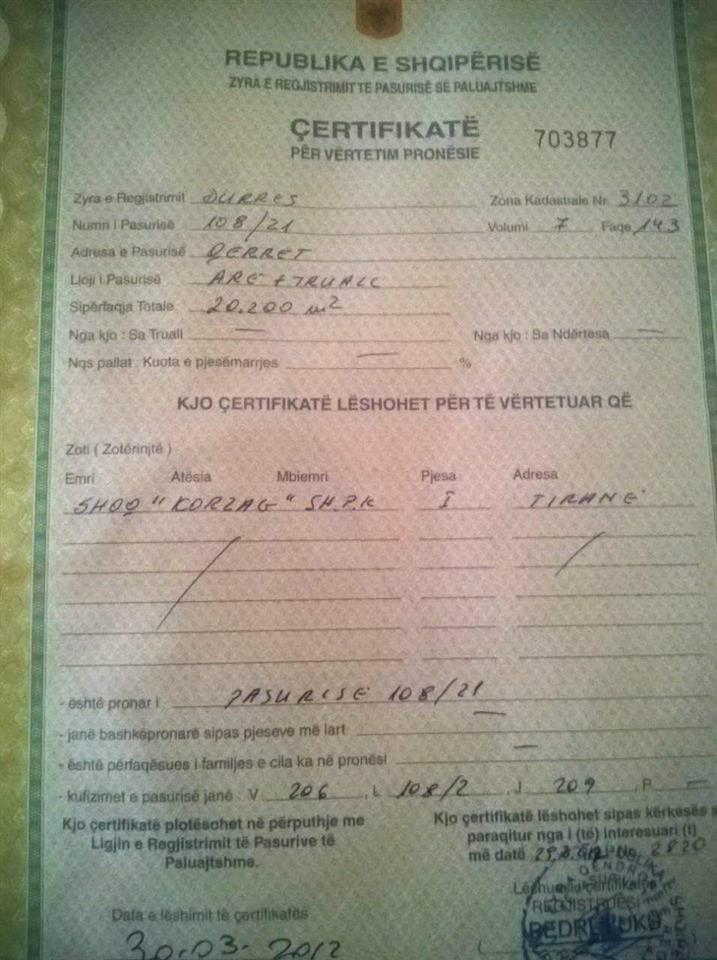 REPUBLIKA E SHQIPËRISË
ZYRA E REGJISTRIMIT TË PASURISË SË PALUAJTSHME
ÇERTIFIKATË 703877
PËR VËRTETIM PRONËSIE
Zyra e Regjistrimit DURRES Zona Kadastrale Nr. 3102
Numri i Pasurisë 108/21 Volumi 7 Faqe 143
Adresa e Pasurisë QERRET
Lloji i Pasurisë ARE + TRUALL
Sipërfaqja Totale 20.200 m²
Nga kjo : Sa Truall — Nga kjo : Sa Ndërtesa —
Nqs pallat : Kuota e pjesëmarrjes — %
KJO ÇERTIFIKATË LËSHOHET PËR TË VËRTETUAR QË
Zoti ( Zotërinjtë )
Emri Atësia Mbiemri Pjesa Adresa
SHOQ "KORZAG" SH.P.K I TIRANË
- është pronar i PASURISË 108/21
- janë bashkëpronarë sipas pjeseve më lart —
- është përfaqësues i familjes e cila ka në pronësi —
- kufizimet e pasurisë janë : V 206 , L 108/2 , J 209 , P —
Kjo çertifikatë plotësohet në përputhje me
Ligjin e Regjistrimit të Pasurive të
Paluajtshme.
Kjo çertifikatë lëshohet sipas kërkesës së
paraqitur nga i (të) interesuari (t)
më datë Nr. 2820
Lëshuesi i çertifikatës
REGJISTRUESI
Data e lëshimit të çertifikatës
30.03.2012